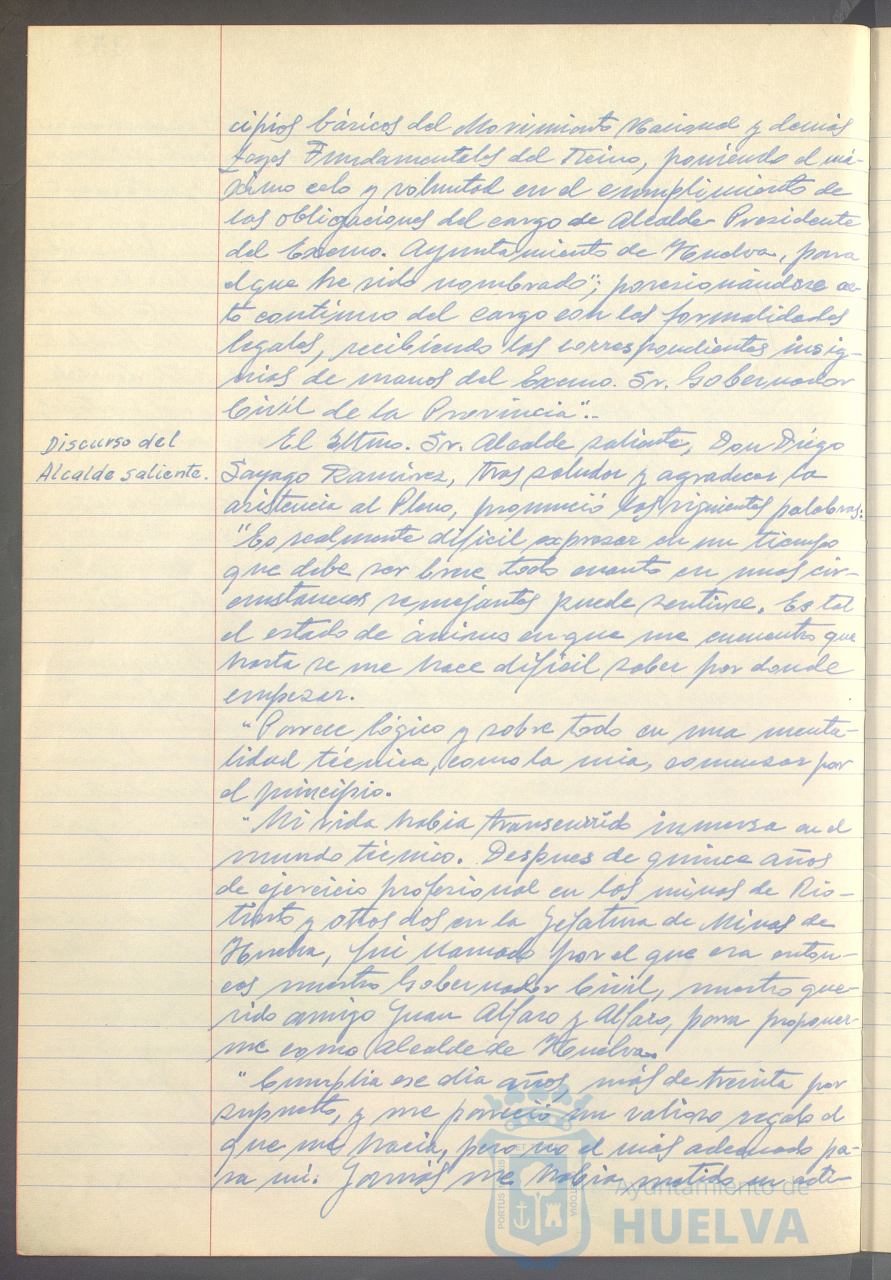 cipios básicos del Movimiento Nacional y demás
Leyes Fundamentales del Reino, poniendo el má-
ximo celo y voluntad en el cumplimiento de
las obligaciones del cargo de Alcalde Presidente
del Excmo. Ayuntamiento de Huelva, para
el que he sido nombrado"; posesionándose ac-
to continuo del cargo con las formalidades
legales, recibiendo las correspondientes insig-
nias de manos del Excmo. Sr. Gobernador
Civil de la Provincia".-
Discurso del
Alcalde saliente.
El Iltmo. Sr. Alcalde saliente, Don Diego
Sayago Ramírez, tras saludar y agradecer la
asistencia al Pleno, pronunció las siguientes palabras:
"Es realmente difícil expresar en un tiempo
que debe ser breve todo cuanto en unas cir-
cunstancias semejantes puede sentirse. Es tal
el estado de ánimo en que me encuentro que
hasta se me hace difícil saber por donde
empezar.
"Parece lógico y sobre todo en una menta-
lidad técnica, como la mia, comenzar por
el principio.
"Mi vida habia transcurrido inmersa en el
mundo técnico. Despues de quince años
de ejercicio profesional en las minas de Rio-
tinto y otros dos en la Jefatura de Minas de
Huelva, fui llamado por el que era enton-
ces nuestro Gobernador Civil, nuestro que-
rido amigo Juan Alfaro y Alfaro, para proponer-
me como Alcalde de Huelva.
"Cumplia ese dia años, más de treinta por
supuesto, y me pareció un valioso regalo el
que me hacia, pero no el más adecuado pa-
ra mi. Jamás me habia metido en acti-
PORTUS MARIS ET TERRAE CUSTODIA
Ayuntamiento de
HUELVA